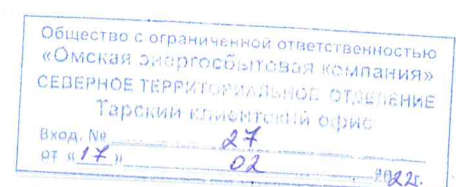 Общество с ограниченной ответственностью
«Омская энергосбытовая компания»
СЕВЕРНОЕ ТЕРРИТОРИАЛЬНОЕ ОТДЕЛЕНИЕ
Тарский клиентский офис
Вход. № 27
от «17» 02 2022г.